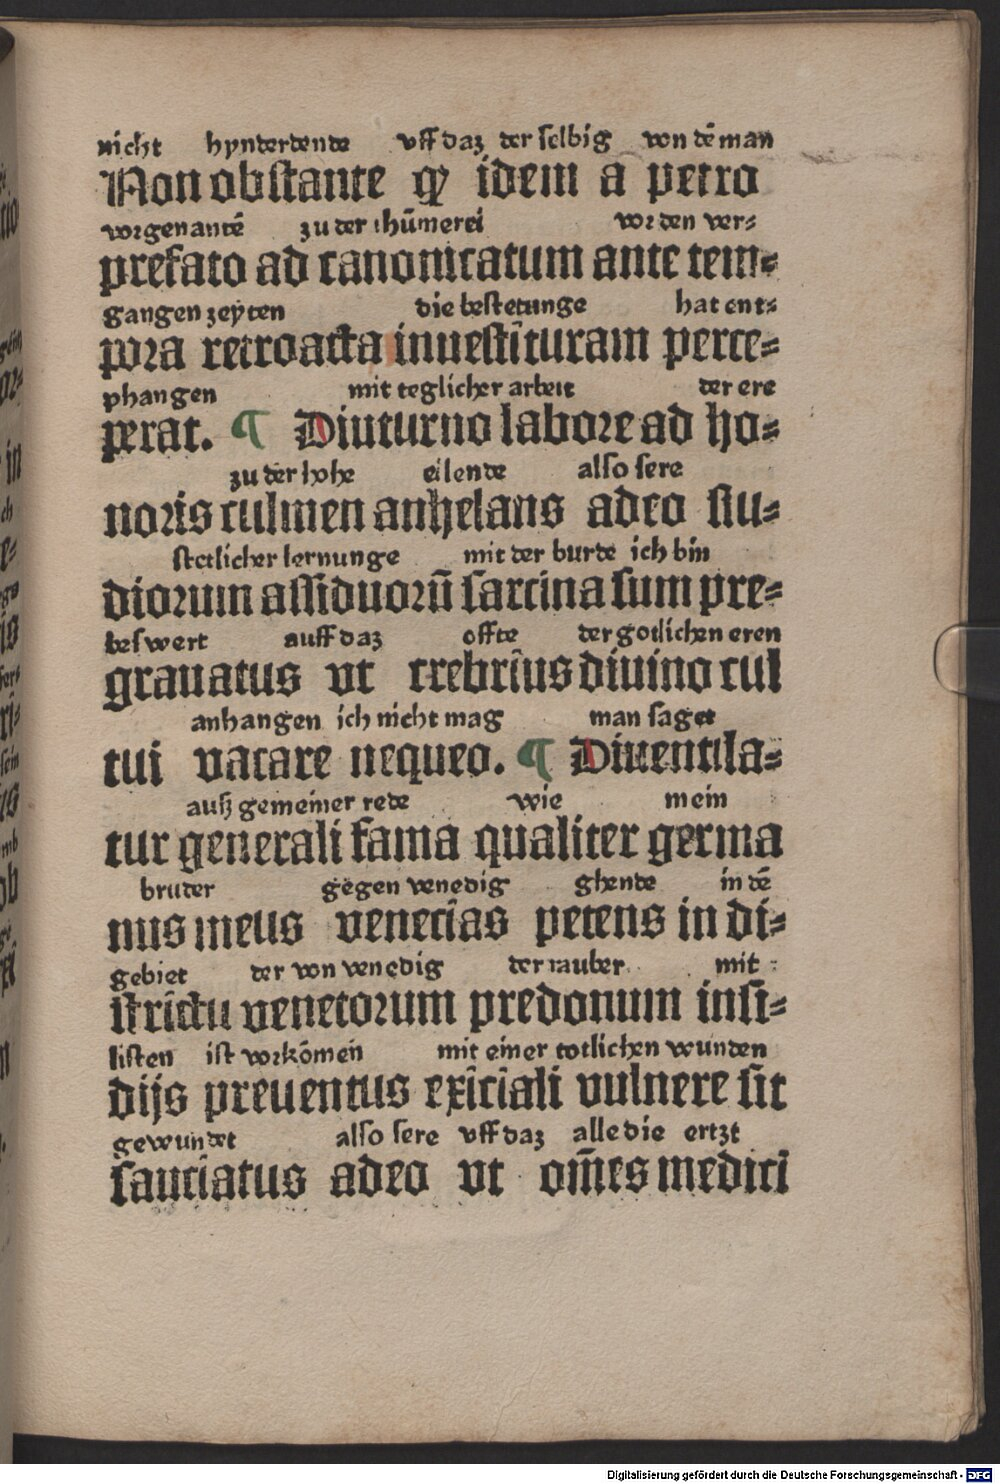 nicht hynderdende vff daz der selbig von dē man
Non obstante ꝙ idem a petro
vorgenantē zu der thūmerei vor den ver⸗
prefato ad canonicatum ante tem⸗
gangen zeyten die bestetunge hat ent⸗
pora retroacta inuestituram perce⸗
phangen mit teglicher arbeit der ere
perat. ¶ Diuturno labore ad ho⸗
zu der hohe eilende also sere
noris culmen anhelans adeo stu⸗
stetlicher lernunge mit der burde ich bin
diorum assiduorū sarcina sum pre⸗
beswert auff daz offte der gotlichen eren
grauatus vt crebrius diuino cul
anhangen ich nicht mag man saget
tui vacare nequeo. ¶ Diuentila⸗
auß gemeiner rede wie mein
tur generali fama qualiter germa
bruder gegen venedig ghende in dē
nus meus venecias petens in di⸗
gebiet der von venedig der rauber mit
strictu venetorum predonum insi⸗
listen ist vorkōmen mit einer totlichen wunden
dijs preuentus exiciali vulnere sit
gewundet also sere vff daz alle die ertzt
sauciatus adeo vt om̄es medici
Digitalisierung gefördert durch die Deutsche Forschungsgemeinschaft - DFG